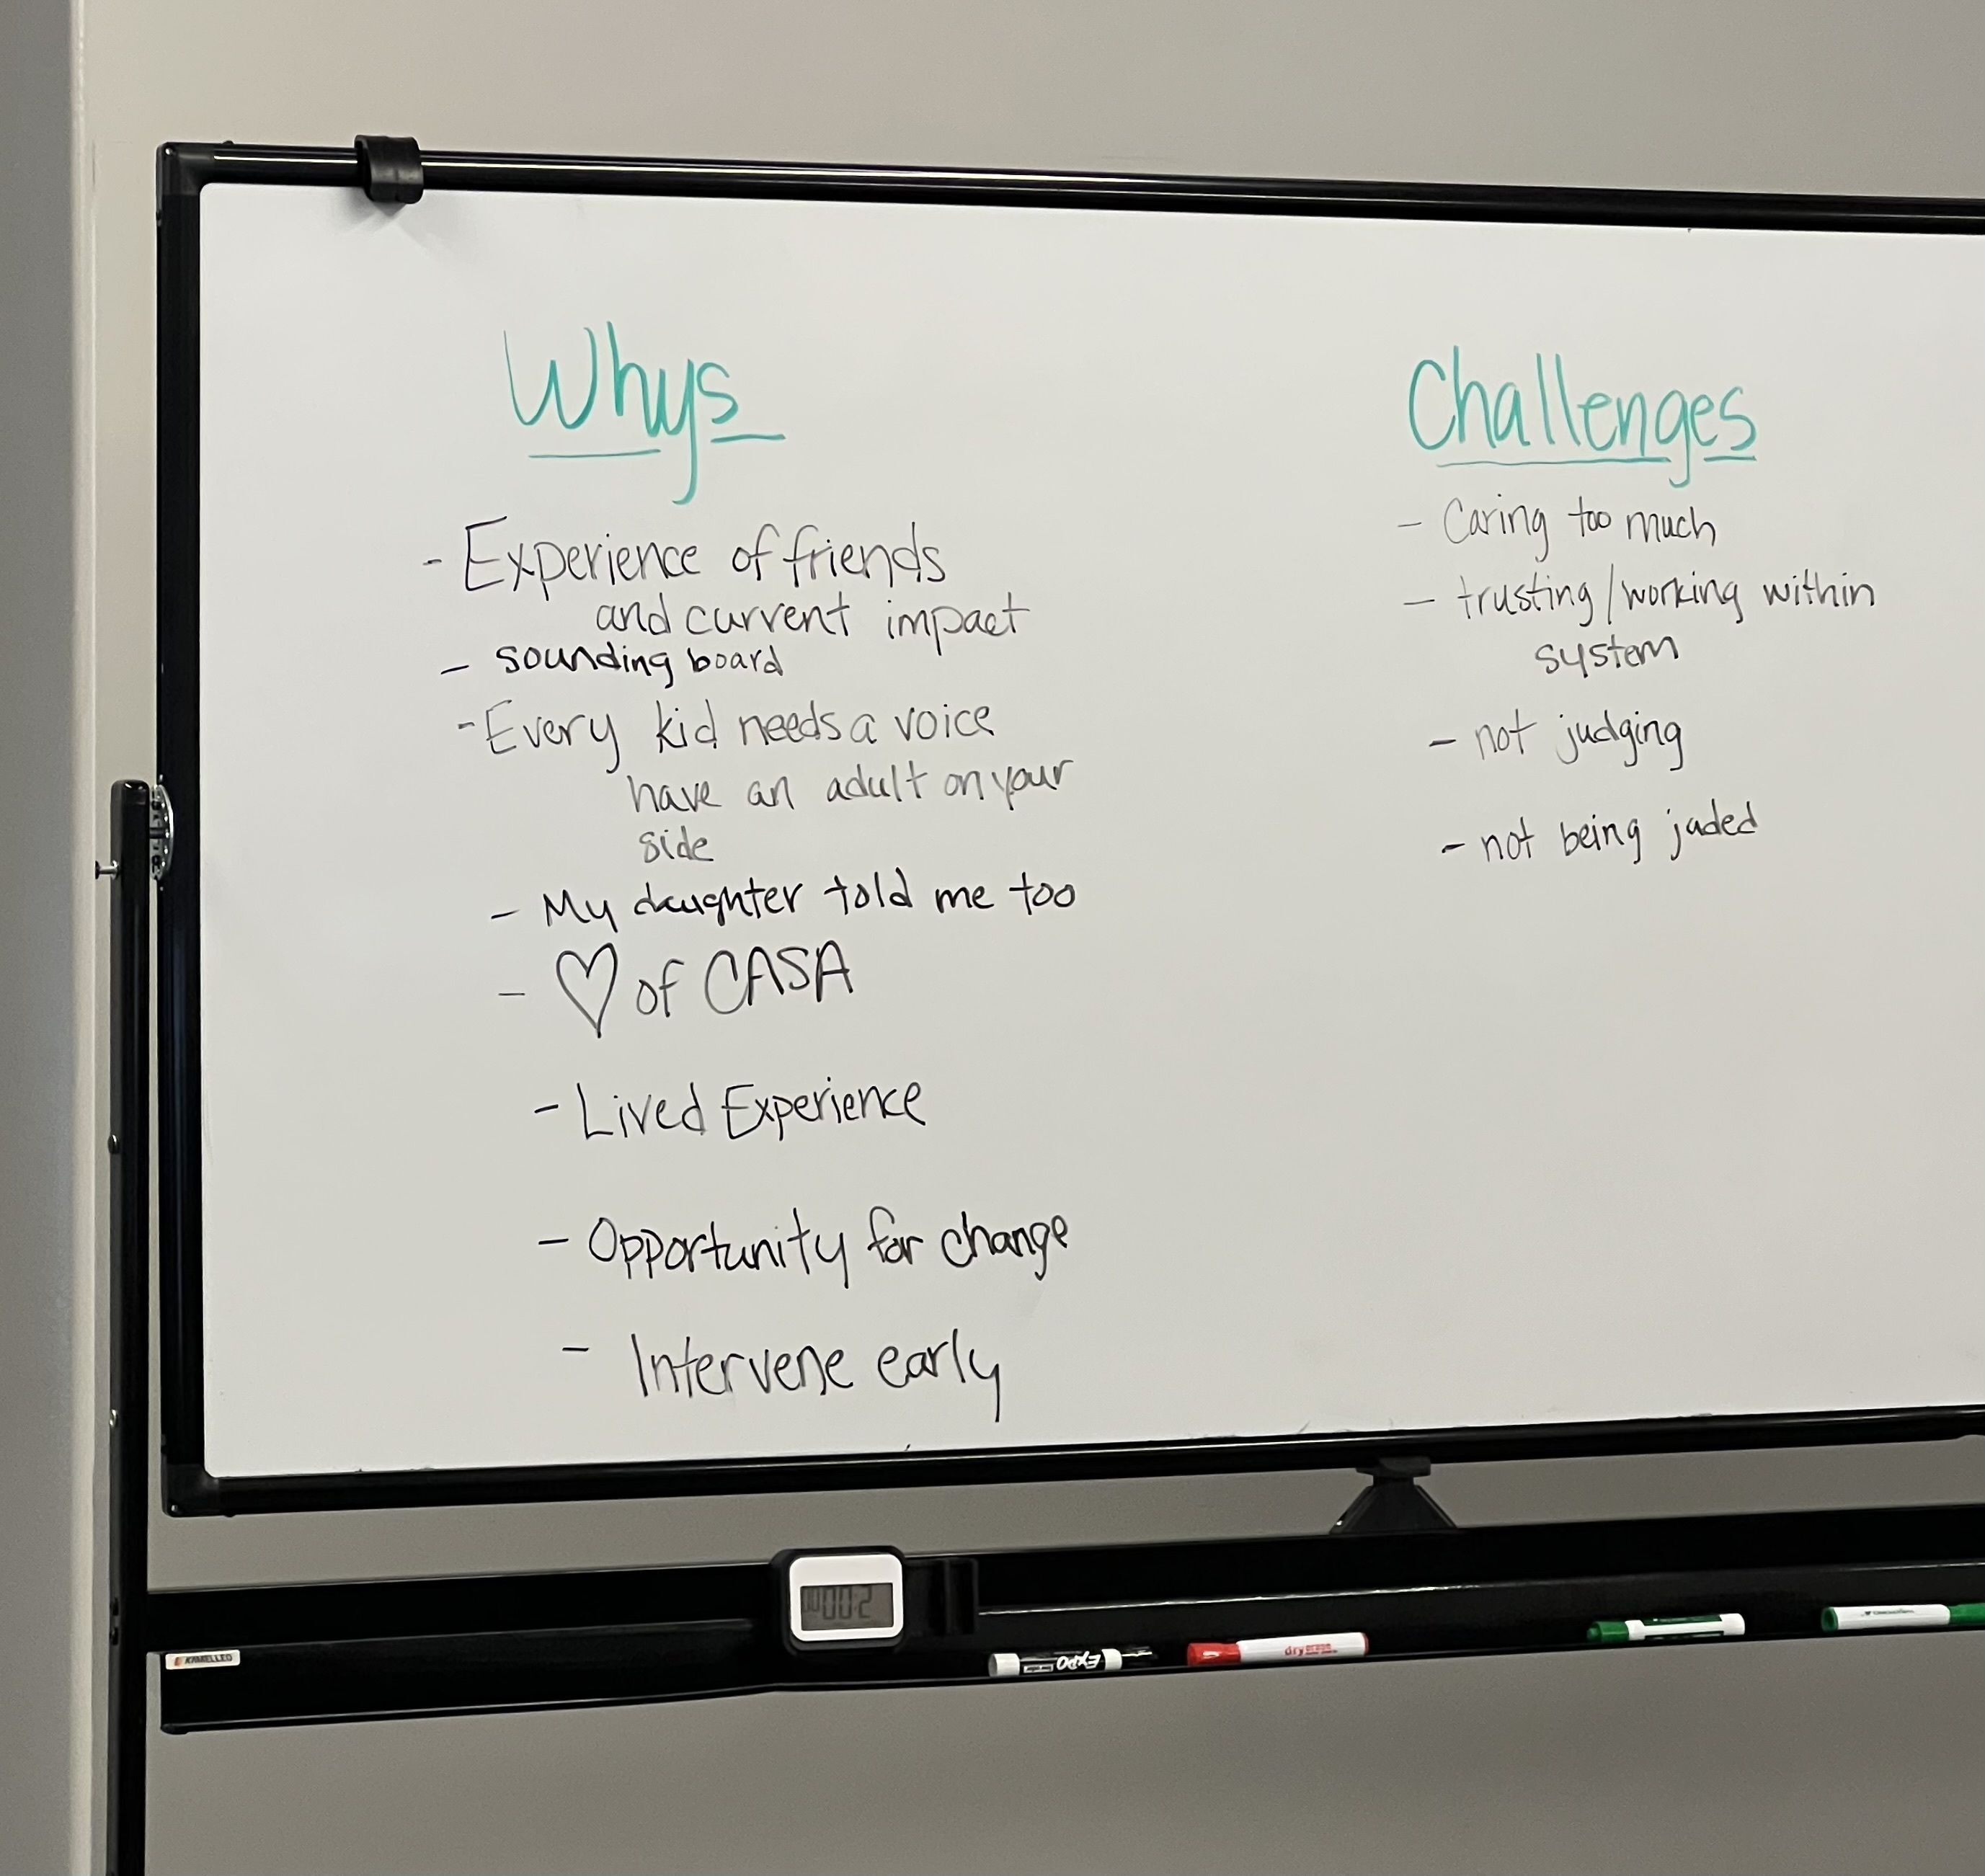 Whys
- Experience of friends
and current impact
- sounding board
- Every kid needs a voice
have an adult on your
side
- My daughter told me too
- ♡ of CASA
- Lived Experience
- Opportunity for change
- Intervene early
Challenges
- Caring too much
- trusting/working within
system
- not judging
- not being jaded
EXPO
dry erase